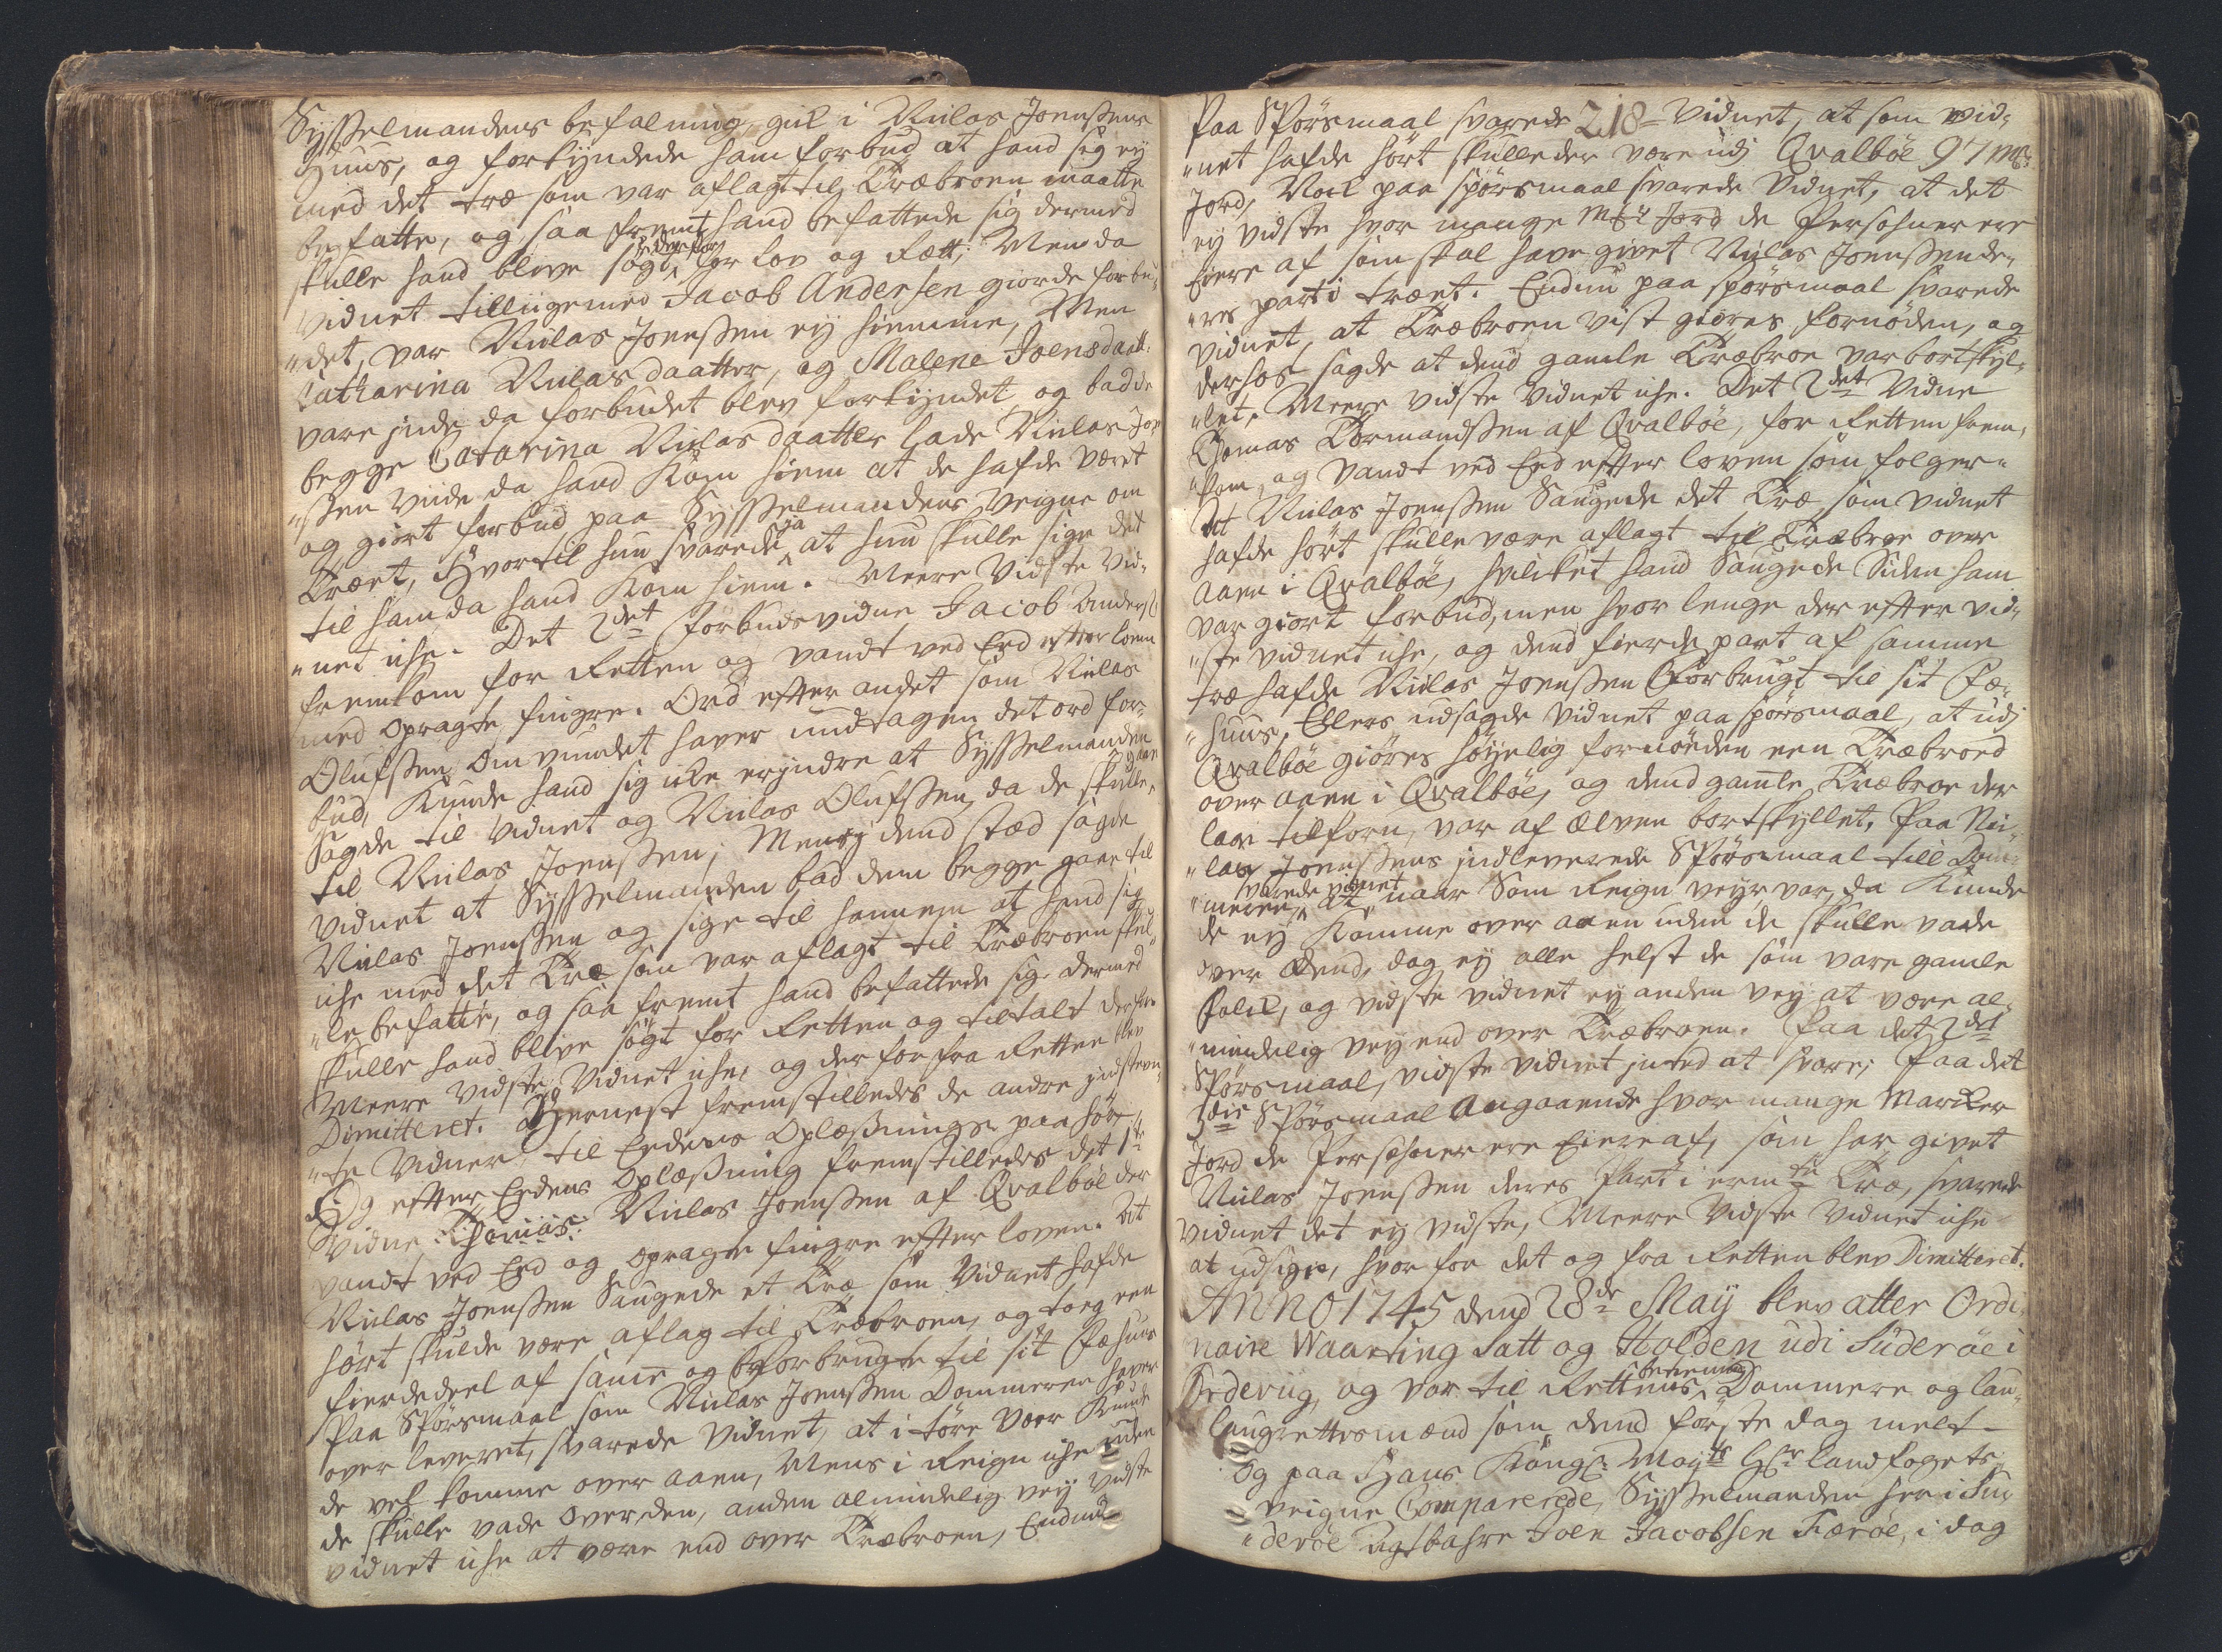 Sysselmandens befalning gik i Niclas Joenssens
Huus, og forkyndede ham forbud at hand sig ey
med det træ som var aflagt til Træbroen maatte
befatte, og saa fremt hand befattede sig dermed
skulle hand blive søgt derfor for Lov og Ræt; Men da
Vidnet tilligemed Jacob Andersen giorde forbu,,
,,det, var Niclas Joenssen ey hiemme, Men
Catharina Niclasdaatter, og Malene Joensdaatt:
vare inde da forbudet blev forkyndet og badde
begge Catarina Niclasdaatter lade Niclas Joen
,,ssen viide da hand kom hiem at de hafde været
og giort forbud paa Sysselmandens Veigne om
Træet, Hvortil hun svarede ja at hun skulle sige det
til ham da hand kom hiem. Meere Vidste Vid-
,,net iche. Det 2det Forbudsvidne Jacob Anders:
fremkom for Retten og vandt ved Eed efter loven
med opragte fingre. Ord efter andet som Niclas
Olufssen om vundet haver undtagen det ord for-
bud, kunde hand sig icke erindre at Sysselmanden
sagde til vidnet og Niclas Olufssen, da de skulle gaae
til Niclas Joenssen; Mens i dend stæd sagde
vidnet at Sysselmanden bad dem begge gaae til
Niclas Joenssen og sige til hannem at hand sig
iche med det Træ som var aflagt til Træbroen skul,,
,,le befatte, og saa fremt hand befattede sig dermed
skulle hand blive søgt for Retten og tiltalt derfor
Meere vidste Vidnet iche, og derfor fra Retten blev
Dimitteret. Hernest fremstilledes de andre indstevn,,
,,te Vidner til Eedens Oplæsnings paahør
Og efter Eedens Oplæsning fremstilledes det 1te
Vidne Thomas: Niclas Joenssen af Qvalbøe der
vandt ved Eed og opragte fingre efter loven. At
Niclas Joenssen Saugede et Træ som Vidnet hafde
hørt skulde være aflag til Træbroen, og tog een
fierdedeel af samme og forbrugte til sit Fæhuus
Paa Spørsmaal som Niclas Joenssen Dommeren haver
over leveret, svarede Vidnet, at i tøre Veer kunde
de vel komme over aaen, Mens i Reign iche uden
de skulle vade over den, anden almindelig vey vidste
vidnet iche at være end over Træbroen, Endnu
Paa Spørsmaal svarede 218 Vidnet, at som vid-
,,net hafde hørt skulle der være udj Qvalbøe 97 mk:
Jord, Nock paa spørsmaal svarede Vidnet, at det
ey vidste hvor mange mkr Jord de Persohner ere
Eiere af som skal have givet Niclas Joenssen de-
,,res part i træet. Endnu paa spørsmaal svarede
vidnet, at Træbroen vist giøres fornøden, og
derhos sagde at dend gamle Træbroe var bortskyl-
,,let, Meere vidste Vidnet iche. Det 2det Vidne
Thomas Tormandssen af Qvalbøe, for Retten frem,
,,kom, og vandt ved Eed efter loven som følger.
At Niclas Joenssen Saugede det Træ, som vidnet
hafde hørt skulle være aflagt til Træbroe over
aaen i Qvalbøe, hvilket hand Saugede siden ham
var giort forbud, men hvor lenge der efter vid-
,,ste vidnet iche, og dend fierde part af samme
træ hafde Niclas Joenssen forbrugt til sit Fæ-
,,huus, Ellers udsagde Vidnet paa spørsmaal, at udj
Qvalbøe giøres høyelig fornøden een Træbroe
over aaen i Qvalbøe, og dend gamle Træbroe der
laae tilforn, var af Elven bortskyllet, Paa Ni-
,,clas Joenssens indleverede Spørsmaal till Dom-
,,meren, svarede vidnet at naar Som Reign veyr var, da kunde
de ey komme over aaen uden de skulle vade
over dend, dog ey alle helst de som vare gamle
Folck, og vidste vidnet ey anden vey at være al-
,,mindelig vey end over Træbroen. Paa det 2det
Spørsmaal, vidste vidnet inted at svare; Paa det
3die Spørsmaal Angaaende hvor mange Marker
Jord de Persohner ere Eiere af, som har givet
Niclas Joenssen deres Part i ermte Træ, svarede
vidnet det ey vidste, Meere Vidste Vidnet iche
at udsige, hvor for det og fra Retten blev Dimitteret.
ANNO 1745 dend 28de Maÿ blev atter Ordi-
naire Waarting Satt og Holden udi Suderøe i
Froderiig, og var til Rettens beteening Dommere og lau-
laugrettesmænd som dend første dag melt
Og paa Hans Kongl: Mayts Hr: landfogets
veigne Comparerede, Sysselmanden her i Su-
,,derøe Agtbahre Joen Jacobsen Færøe, i dag